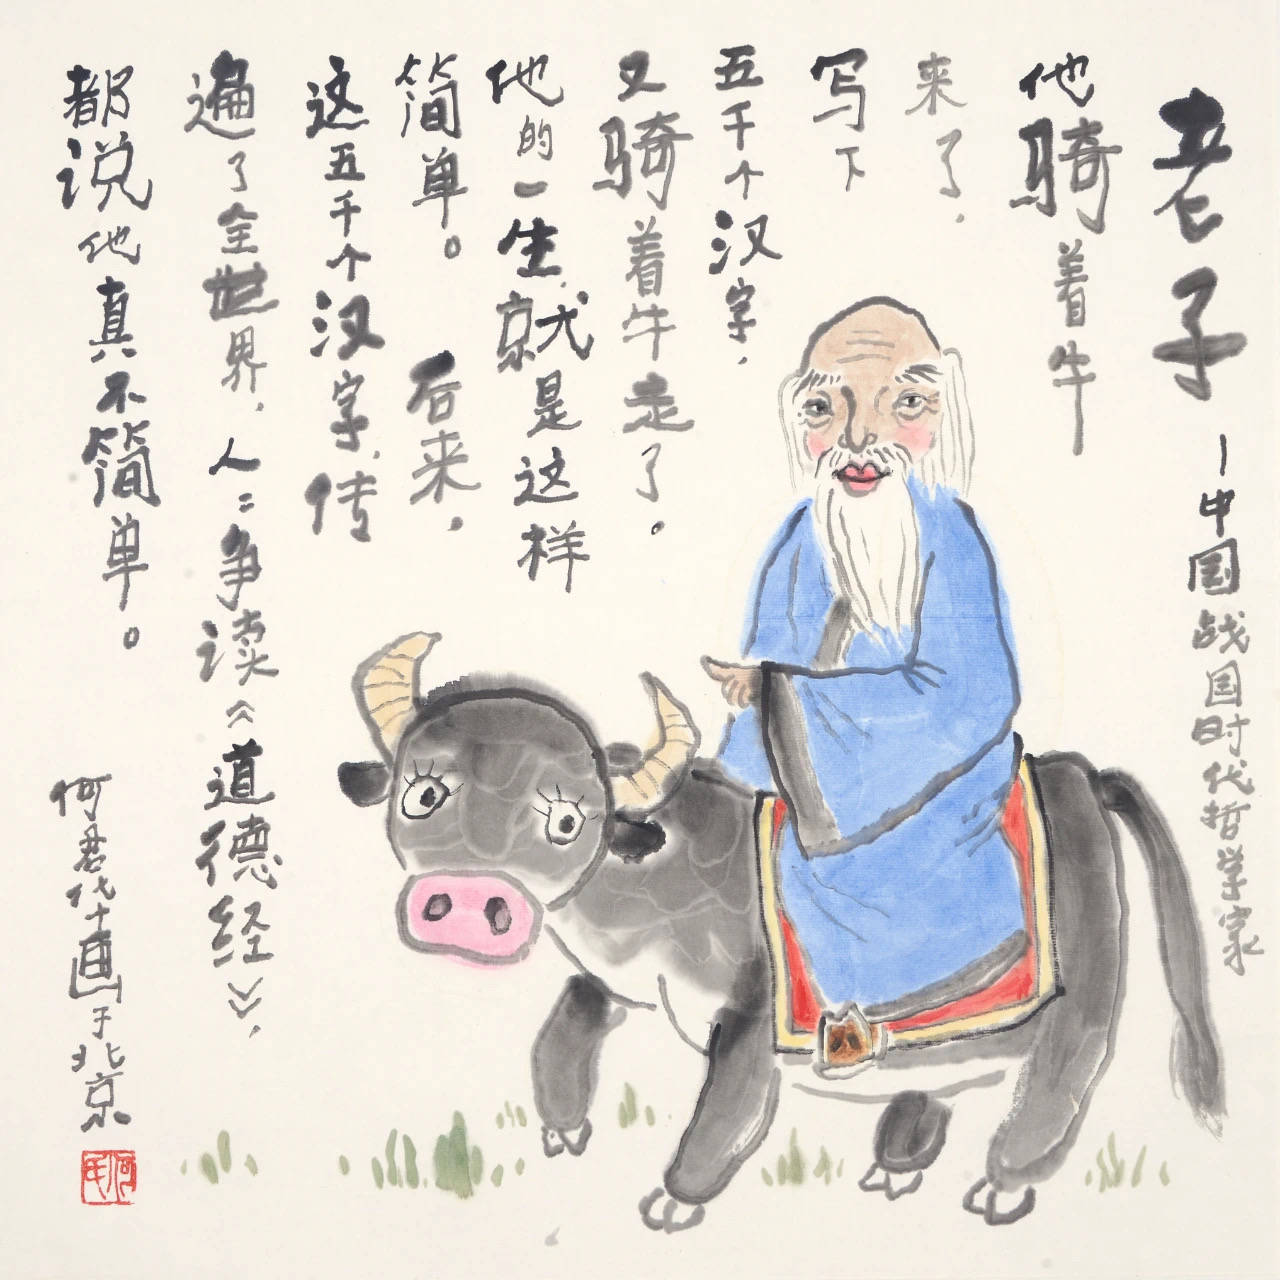 老子 -中国战国时代哲学家
他骑着牛
来了，
写下
五千个汉字，
又骑着牛走了。
他的一生，就是这样
简单。后来，
这五千个汉字，传
遍了全世界，人々争读《道德经》，
都说他真不简单。
何君华画于北京
何氏